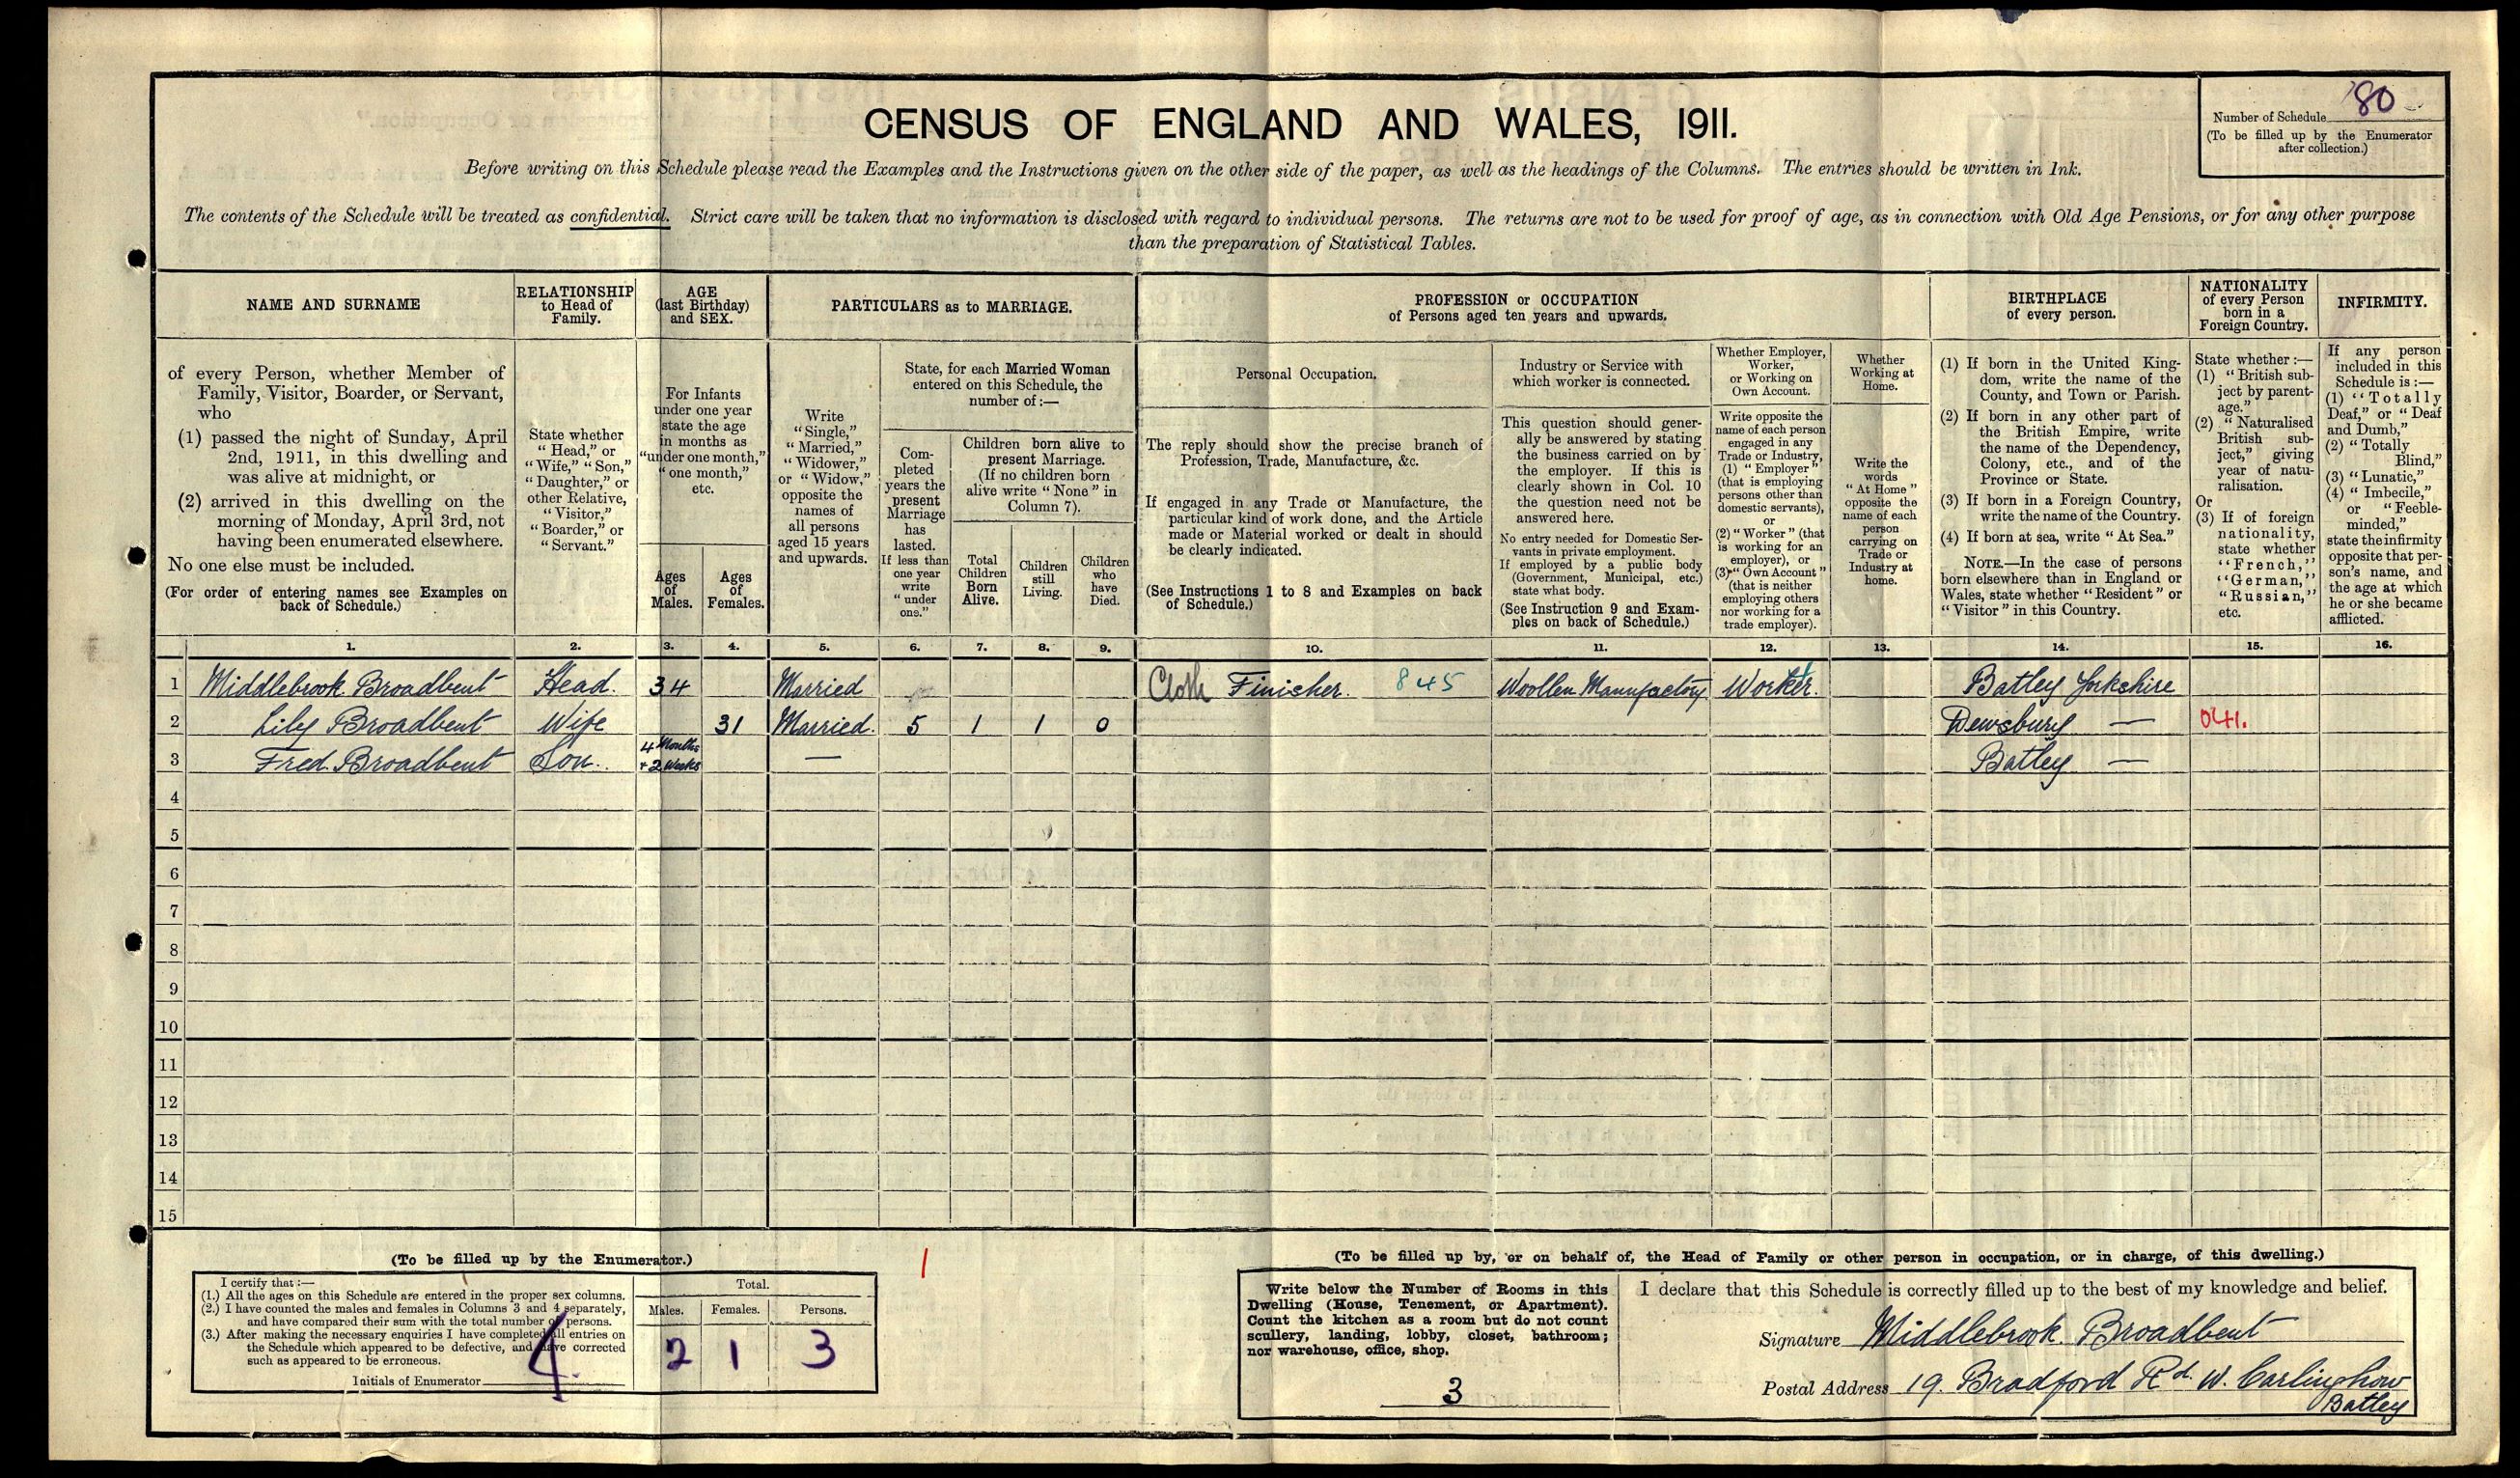 80
Number of Schedule
(To be filled up by the Enumerator
after collection.)
CENSUS OF ENGLAND AND WALES, 1911.
Before writing on this Schedule please read the Examples and the Instructions given on the other side of the paper, as well as the headings of the Columns. The entries should be written in Ink.
The contents of the Schedule will be treated as confidential. Strict care will be taken that no information is disclosed with regard to individual persons. The returns are not to be used for proof of age, as in connection with Old Age Pensions, or for any other purpose
than the preparation of Statistical Tables.
NAME AND SURNAME
of every Person, whether Member of
Family, Visitor, Boarder, or Servant,
who
(1) passed the night of Sunday, April
2nd, 1911, in this dwelling and
was alive at midnight, or
(2) arrived in this dwelling on the
morning of Monday, April 3rd, not
having been enumerated elsewhere.
No one else must be included.
(For order of entering names see Examples on
back of Schedule.)
RELATIONSHIP
to Head of
Family.
State whether
"Head," or
"Wife," "Son,"
"Daughter," or
other Relative,
"Visitor,"
"Boarder," or
"Servant."
AGE
(last Birthday)
and SEX.
For Infants
under one year
state the age
in months as
"under one month,"
"one month,"
etc.
Ages
of
Males.
Ages
of
Females.
PARTICULARS as to MARRIAGE.
Write
"Single,"
"Married,"
"Widower,"
or "Widow,"
opposite the
names of
all persons
aged 15 years
and upwards.
State, for each Married Woman
entered on this Schedule, the
number of :—
Com-
pleted
years the
present
Marriage
has
lasted.
If less than
one year
write
"under
one."
Children born alive to
present Marriage.
(If no children born
alive write "None" in
Column 7).
Total
Children
Born
Alive.
Children
still
Living.
Children
who
have
Died.
PROFESSION or OCCUPATION
of Persons aged ten years and upwards.
Personal Occupation.
The reply should show the precise branch of
Profession, Trade, Manufacture, &c.
If engaged in any Trade or Manufacture, the
particular kind of work done, and the Article
made or Material worked or dealt in should
be clearly indicated.
(See Instructions 1 to 8 and Examples on back
of Schedule.)
Industry or Service with
which worker is connected.
This question should gener-
ally be answered by stating
the business carried on by
the employer. If this is
clearly shown in Col. 10
the question need not be
answered here.
No entry needed for Domestic Ser-
vants in private employment.
If employed by a public body
(Government, Municipal, etc.)
state what body.
(See Instruction 9 and Exam-
ples on back of Schedule.)
Whether Employer,
Worker,
or Working on
Own Account.
Write opposite the
name of each person
engaged in any
Trade or Industry,
(1) "Employer"
(that is employing
persons other than
domestic servants),
or
(2) "Worker" (that
is working for an
employer), or
(3) "Own Account"
(that is neither
employing others
nor working for a
trade employer).
Whether
Working at
Home.
Write the
words
"At Home"
opposite the
name of each
person
carrying on
Trade or
Industry at
home.
BIRTHPLACE
of every person.
(1) If born in the United King-
dom, write the name of the
County, and Town or Parish.
(2) If born in any other part of
the British Empire, write
the name of the Dependency,
Colony, etc., and of the
Province or State.
(3) If born in a Foreign Country,
write the name of the Country.
(4) If born at sea, write "At Sea."
NOTE.—In the case of persons
born elsewhere than in England or
Wales, state whether "Resident" or
"Visitor" in this Country.
NATIONALITY
of every Person
born in a
Foreign Country.
State whether :—
(1) "British sub-
ject by parent-
age."
(2) "Naturalised
British sub-
ject," giving
year of natu-
ralisation.
Or
(3) If of foreign
nationality,
state whether
"French,"
"German,"
"Russian,"
etc.
INFIRMITY.
If any person
included in this
Schedule is :—
(1) "Totally
Deaf," or "Deaf
and Dumb,"
(2) "Totally
Blind,"
(3) "Lunatic,"
(4) "Imbecile,"
or "Feeble-
minded,"
state the infirmity
opposite that per-
son's name, and
the age at which
he or she became
afflicted.
1. 2. 3. 4. 5. 6. 7. 8. 9. 10. 11. 12. 13. 14. 15. 16.
1 Middlebrook Broadbent Head. 34 Married Cloth Finisher. 845 Woollen Manufactory Worker. Batley Yorkshire
2 Lily Broadbent Wife 31 Married. 5 1 1 0 Dewsbury — 041.
3 Fred. Broadbent Son. 4 Months + 2 Weeks — Batley —
4
5
6
7
8
9
10
11
12
13
14
15
(To be filled up by the Enumerator.)
I certify that :—
(1.) All the ages on this Schedule are entered in the proper sex columns.
(2.) I have counted the males and females in Columns 3 and 4 separately,
and have compared their sum with the total number of persons.
(3.) After making the necessary enquiries I have completed all entries on
the Schedule which appeared to be defective, and have corrected
such as appeared to be erroneous.
Initials of Enumerator
Total.
Males. Females. Persons.
2 1 3
1
(To be filled up by, or on behalf of, the Head of Family or other person in occupation, or in charge, of this dwelling.)
Write below the Number of Rooms in this
Dwelling (House, Tenement, or Apartment).
Count the kitchen as a room but do not count
scullery, landing, lobby, closet, bathroom;
nor warehouse, office, shop.
3
I declare that this Schedule is correctly filled up to the best of my knowledge and belief.
Signature Middlebrook Broadbent
Postal Address 19. Bradford Rd. W. Carlinghow
Batley